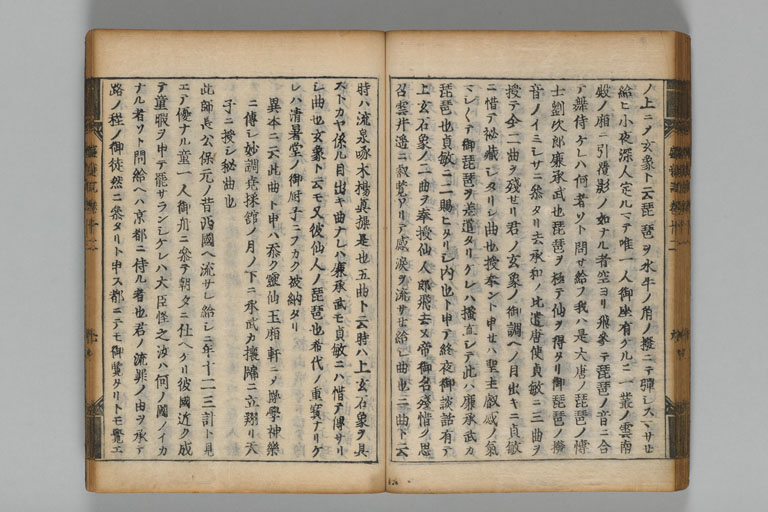 ノ上ニメ玄象ト云琵琶ヲ水牛ノ角ノ撥ニテ弾レスマサセ
給ヒ小夜深人定ルマテ唯一人御座有ケルニ一叢ノ雲南
殿ノ廂ニ引覆影ノ如ナル者空ヨリ飛参テ琵琶ノ音ニ合
テ侍ケレハ何者ソト問セ給フ我ハ是大唐ノ琵琶ノ博
士劉次郎廉承武也琵琶ヲ極テ仙ヲ得タリ御琵琶ノ撥
音ノイミシサニ参タリ去承和ノ比遣唐使貞敏ニ三曲ヲ
授テ今二曲ヲ残セリ君ノ玄象ノ御調ヘノ目出キニ貞敏
ニ惜テ秘蔵シタリシ曲也授奉ント申セハ聖主叡感ノ気
マシ〱テ御琵琶ヲ差遣タリケレハ撥直シテ此ハ廉承武カ
琵琶也貞敏ニ二賜ヒタリシ内也ト申テ終夜御談話有テ
上玄石象ノ二曲ヲ奉授仙人即飛去ヌ帝御名残惜ク思
召雲井遥ニ叡覧アリテ感涙ヲ流サセ給シ曲也三曲ト云
時ハ流泉啄木楊真操是也五曲ト云時ハ上玄石象ヲ具
ストカヤ係ル目出キ曲ナレハ廉承武モ貞敏ニハ惜テ伝サリ
シ曲也玄象ト云モ又彼仙人ノ琵琶也希代ノ重宝ナリケ
レハ清暑堂ノ御厨子ニフカク被納タリ
異本ニ云此曲ト申ハ忝ク霊仙玉廂軒ニメ学神楽
ニ伝シ妙調唐採館ノ月ノ下ニ承武カ牀ニ立翔リ天
子ニ授シ秘曲也
此師長公保元ノ昔西国ヘ流サレ給シニ年十二三計ト見
エテ優ナル童一人御舟ニ参テ朝夕ニ仕ヘケリ彼国近ク成
テ童暇ヲ申テ罷サランシケレハ大臣怪之汝ハ何ノ国ノイカ
ナル者ソト問給ヘハ京都ニ侍ル者也君ノ流罪ノ由ヲ承テ
路ノ程ノ御徒然ニ参タリト申ス都ニテモ御覧タリトモ覚エ